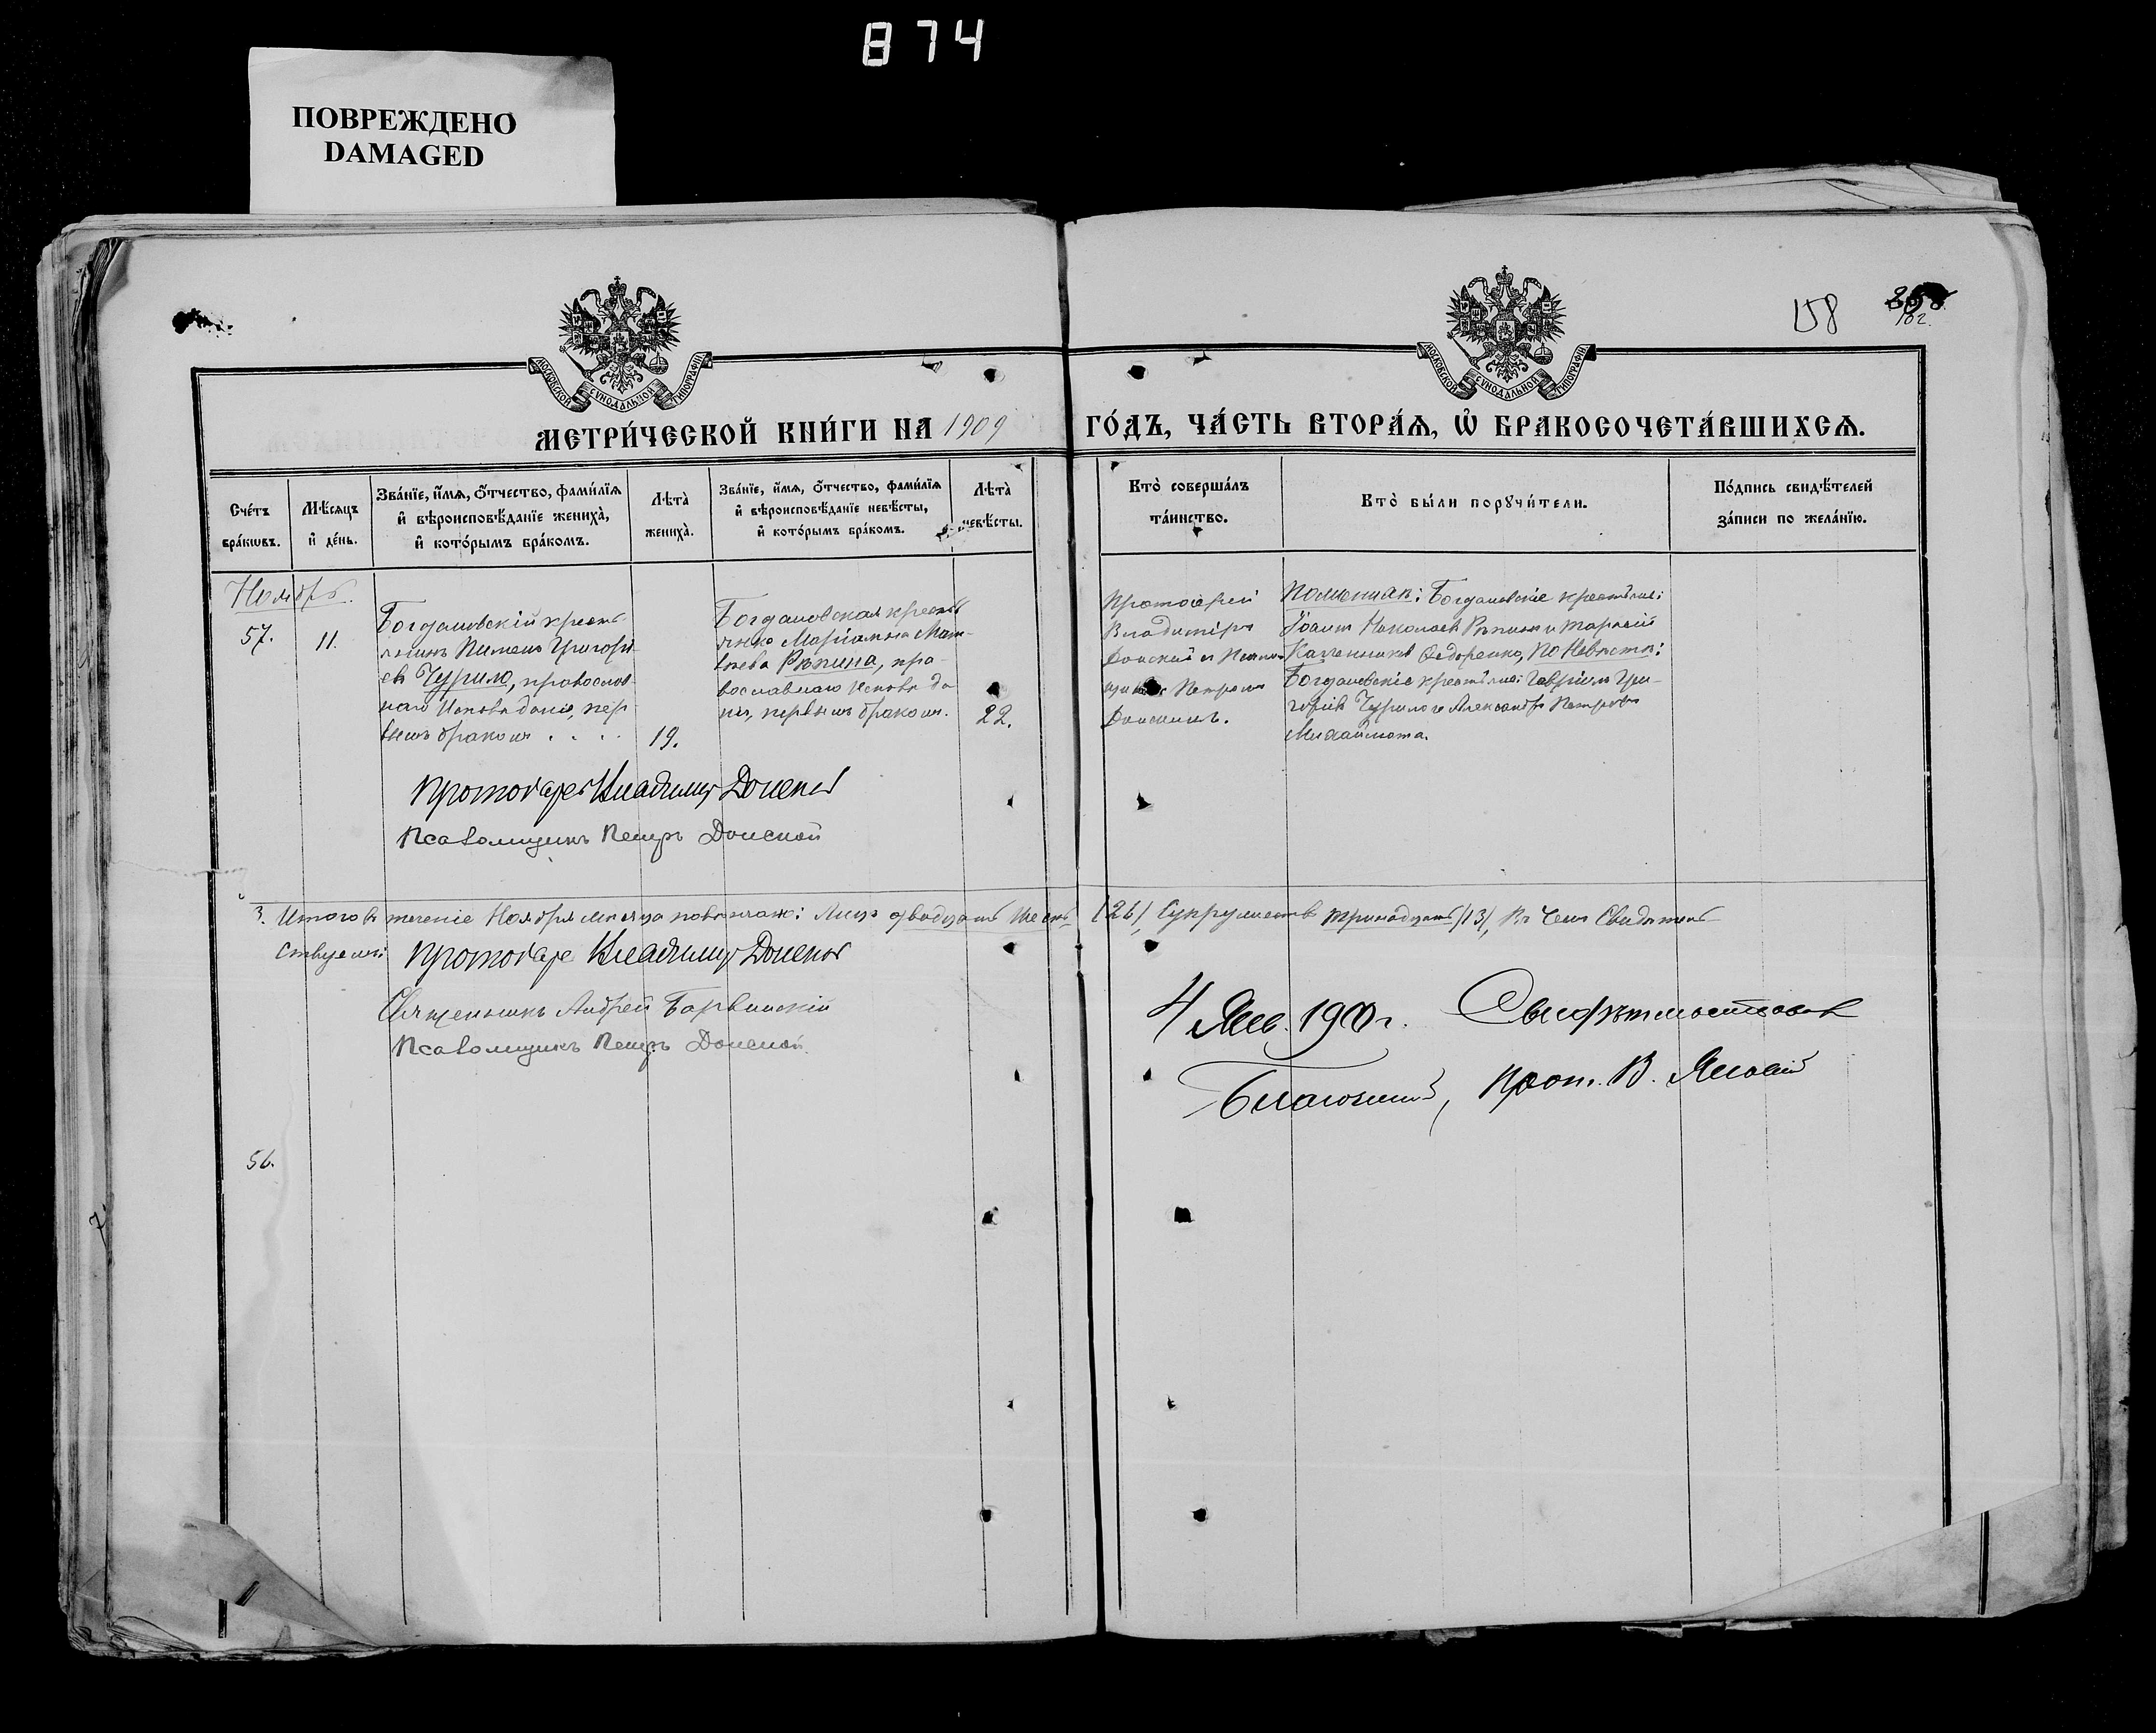 874
ПОВРЕЖДЕНО
DAMAGED
158
МОСКОВСКОЙ СѴНОДАЛЬНОЙ ТИПОГРАФІИ
МОСКОВСКОЙ СѴНОДАЛЬНОЙ ТИПОГРАФІИ
МЕТРИ́ЧЕСКОЙ КНИ́ГИ НА 1909 ГО́ДЪ, ЧА́СТЬ ВТОРА́Ѧ, Ѡ҆ БРАКОСОЧЕТА́ВШИХСѦ.
Сче́тъ
бра́кѡвъ.
Мѣ́сѧцъ
и҆ де́нь.
Зва́нїе, и҆́мѧ, о҆́тчество, фами́лїѧ
и҆ вѣроисповѣ́данїе жениха̀,
и҆ кото́рымъ бра́комъ.
Лѣта̀
жениха̀.
Зва́нїе, и҆́мѧ, о҆́тчество, фами́лїѧ
и҆ вѣроисповѣ́данїе невѣ́сты,
и҆ кото́рымъ бра́комъ.
Лѣта̀
невѣ́сты.
Кто̀ соверша́лъ
та́инство.
Кто̀ бы́ли порꙋчи́тели.
По́дпись свидѣ́телей
за́писи по жела́нїю.
Ноябрь.
57.
11.
Богдановскій кресть-
янинъ Пименъ Григорі-
евъ Чурило, православ-
наго исповѣданія, пер-
вымъ бракомъ . . . .
19.
Богдановская кресть
янка Маріамна Мат-
вѣева Рѣпина, пра-
вославнаго исповѣда
нія, первымъ бракомъ.
22.
Протоіерей
Владиміръ
Донской и Псалом-
щикъ Петръ
Донской.
По женихѣ: Богдановскіе крестьяне:
Іоаннъ Николаевъ Рѣпинъ и Тарасій
Ѳедоренко, по Невѣстѣ:
Богдановскіе крестьяне: Гавріилъ Гри-
горіевъ Чурило и Александръ Петровъ
Михайлюта.
Протоіерей Владиміръ Донской
Псаломщикъ Петръ Донской
3. Итого въ теченіе Ноября мѣсяца повѣнчано: Лицъ двадцать шесть (26), Супружествъ тринадцать (13), Въ чемъ Свидѣтель-
ствуемъ:
Протоіерей Владиміръ Донской
Священникъ Андрей Барвинскій
Псаломщикъ Петръ Донской.
4 Янв. 1910 г. Свидѣтельствовалъ
Благочинный, Прот. В. Яновскій
56.
7